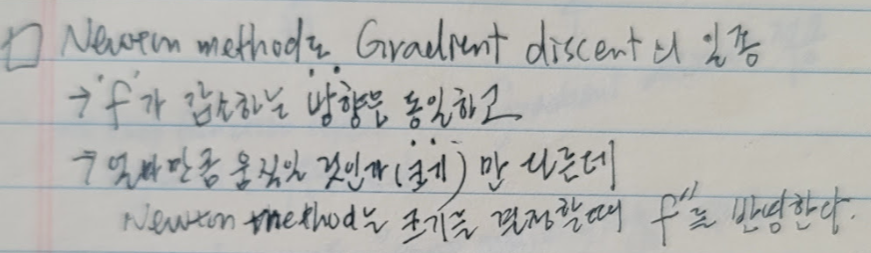 Newton method도 Gradient discent의 일종
→ 'f'가 감소하는 방향은 동일하고
→ 얼마만큼 움직일 것인가(크기)만 다른데
Newton method는 크기를 결정할때 f''를 반영한다.